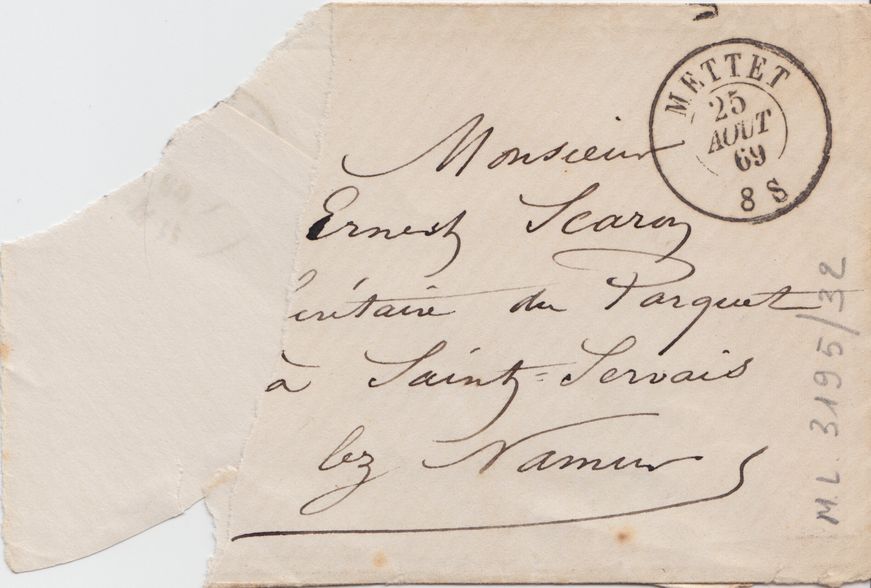 METTET
25
AOUT
69
8 S
Monsieur
Ernest Scaron
du Parquet
à Saint-Servais
lez Namur
M.L. 3195/32